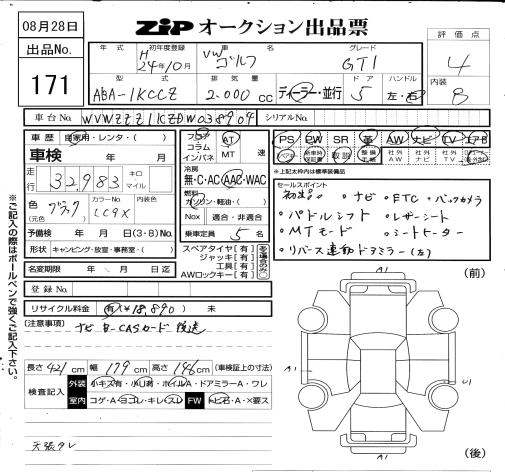 08月28日
ZiP オークション出品票
出品No.
171
年式
初年度登録
H 24年10月
車名
VW ゴルフ
グレード
GTI
評価点
4
内装
8
型式
ABA-1KCCZ
排気量
2.000 cc
ディーラー・並行
ドア
5
ハンドル
左・右
車台No.
シリアルNo.
車歴 自家用・レンタ・( )
車検 年 月
走行 32,983 キロ マイル
色(元色) ブラック
カラーNo. LC9X
内装色
予備検 年 月 日(3・8)No.
形状 キャンピング・放宣・事務室・( )
名変期限 年 月 日迄
登録No.
フロア コラム インパネ
AT MT 速
冷房
無・C・AC・AAC・WAC
燃料
ガソリン・軽油・( )
Nox 適合・非適合
乗車定員 5 名
スペアタイヤ[有]
ジャッキ[有]
工具[有]
AWロックキー[有]
PS PW SR 革 AW ナビ TV エアB
新車時保証書 取説 整備手帳 社外AW 社外ナビ 社外TV
*上記太枠内は標準装備品
セールスポイント
・ナビ ・ETC ・バックカメラ
・パドルシフト ・レザーシート
・MTモード ・シートヒーター
・リバース連動ドアミラー(左)
リサイクル料金 有(¥18,890) 未
[注意事項] ナビ B-CASカード 後送
長さ 421 cm 幅 179 cm 高さ 146 cm (車検証上の寸法)
検査記入
外装 小キズ有・小凹有・ホイルA・ドアミラーA・ワレ
室内 コゲ・A・ヨゴレ・キレ・スレ FW トビ石・A・×要ス
天張タレ
※ご記入の際はボールペンで強くご記入下さい。
(前)
A1
A1
U1
A1
(後)